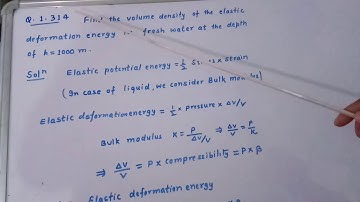 Q. 1.314 Find the volume density of the elastic
deformation energy in fresh water at the depth
of h = 1000 m.
Solⁿ Elastic potential energy = ½ Stress x strain
(In case of liquid, we consider Bulk modulus)
Elastic deformation energy = ½ x Pressure x ΔV/V
Bulk modulus K = P / (ΔV/V) ⇒ ΔV/V = P/K
⇒ ΔV/V = P x compressibility = P x β
Elastic deformation energy